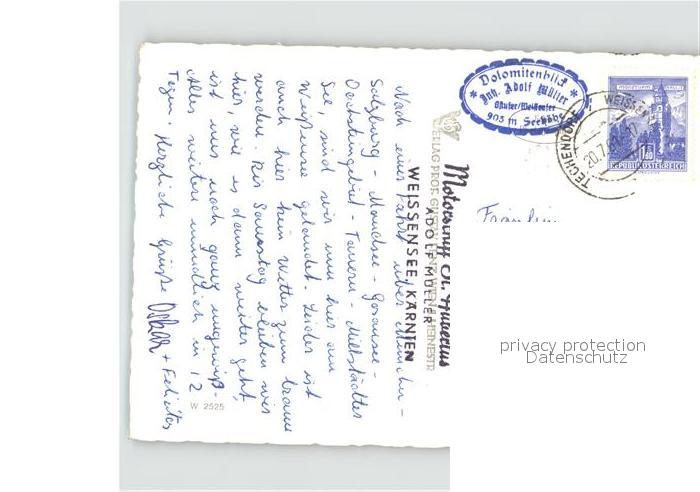 Nach einer Fahrt über München -
Salzburg - Mondsee - Gosausee -
Dachsteingebiet - Tauern - Millstädter
See, sind wir nun hier am
Weißensee gelandet. Leider ist
auch hier kein Wetter zum braun
werden. Bis Samstag bleiben wir
hier, wie es dann weiter geht,
ist uns noch ganz ungewiß.
Alles weitere mündlich in 12
Tagen. Herzliche Grüße Oskar + Felicitas
W 2525
Motorsayf Ch. Hubertus
ADOLF MÜLLER
WEISSENSEE, KÄRNTEN
VERLAG PROF.
Dolomitenblick
Inh. Adolf Müller
Ostufer/Weißensee
905 m Seehöhe
WEISSEN
TECHENDORF
20.7.
1.50
REPUBLIK ÖSTERREICH
Fräulein
privacy protection
Datenschutz